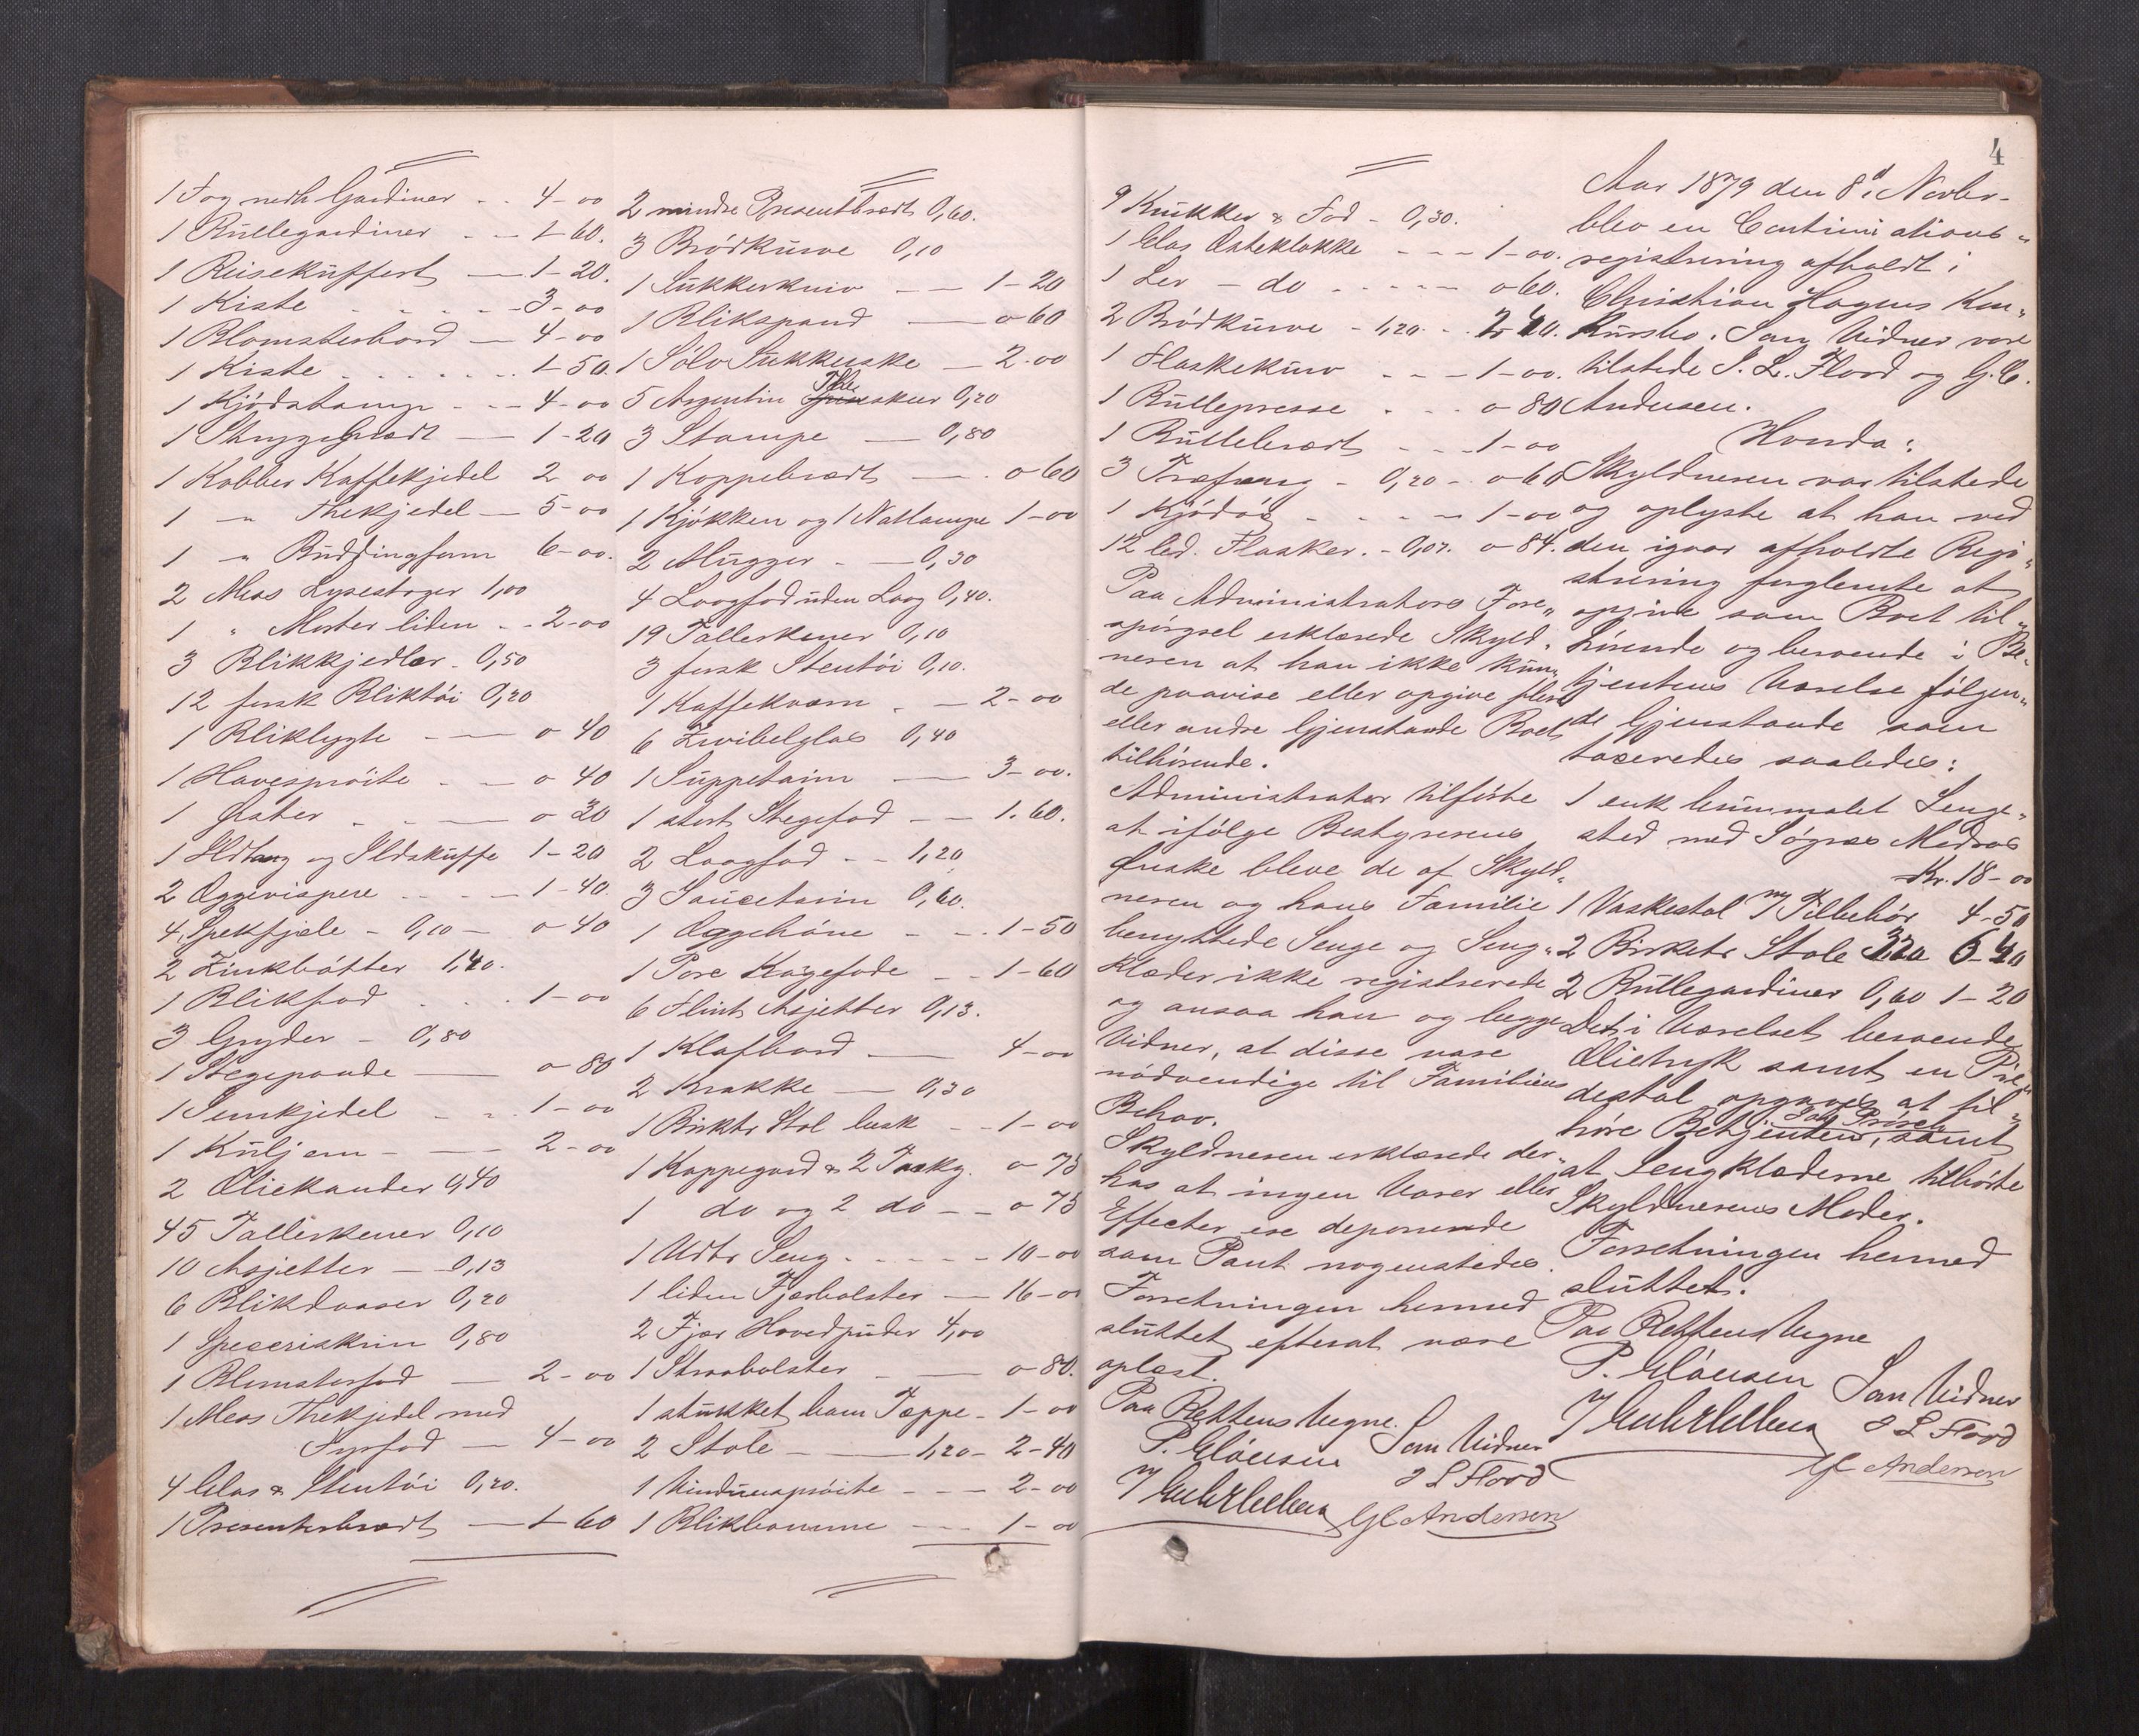 1 Fag nedh Gardiner - - 4-00
1 Rullegardiner - - 1-60.
1 Reisekuffert — 1-20.
1 Kiste - - - - 3-00
1 Blomsterbord — 4-00
1 Kiste - - - - 1-50.
1 Kjödstamp - - - 4-00
1 Skyggebrædt — 1-20
1 Kobber Kaffekjedel 2 00
1 - Thekjedel — 5-00
1 - Buddingform 6-00.
2 Mess Lysestager 1,00
1 " Morter liden - - 2-00
3 Blikkjedler - 0,50
12 forsk Bliktöi 0,20
1 Bliklygte - — 0 40
1 Havesprøite - - 0 40
1 Øster - - — 0 30
1 Ildtang og Ildskuffe 1-20
2 Æggevispere - - - 1-40.
4 Spekfjæle - 0,10 - 0-40
2 Zinkbötter 1,40.
1 Blikfad . . . 1-00
3 Gryder - 0,80
1 Stegepande — 0-80
1 Temkjedel - - 1-00
1 Kuljern - — 2-00
2 Oliekander 0,40
45 Tallerkener 0,10
10 Asjetter — 0,13
6 Blikdaaser 0,20
1 Speceriskrin 0,80
1 Blomsterfad — 2-00
1 Mess Thekjedel med
Fyrfad — 4-00
4 Glas & Stentöi 0,20.
1 Presenterbrædt — 1-60
2 mindre Presentbrædt 0,60.
3 Brödkurve 0,10
1 Sukkerkniv - — 1-20
1 Blikspand — 0 60
1 Sölv Sukkerske — 2-00
5 Argentin Theskeer 0,20
3 Stampe — 0,80
1 Koppebrædt — . 0 60
1 Kjökken og 1 Natlampe 1-00
2 Mugger - — 0,30
4 Laagfad uden Laag 0,40.
19 Tallerkener 0,10
3 forsk Stentöi 0,10.
1 Kaffekværn . — 2-00
6 Zwibelglas 0,40
1 Suppeterin — 3-00.
1 stort Stegefad - — 1.60.
2 Laagfad - - 1,20
3 Sauceterin 0,60.
1 Æggehöne - - - 1-50
1 Pose Kagefade - - 1-60
6 Flint Asjetter 0,13.
1 Klafbord — 4-00
2 Krakke — 0,30
1 Birktr Stol lusk - - 1-00
1 Kappegard & 2 Trækg. 0-75
1 do og 2 do - - 0-75
1 Udtr Seng - - - - 10-00
1 liden Fjærbolster — 16-00
2 Fjær Hovedpuder 4,00
1 Straabolster - — 0 80.
1 stukket bom Tæppe - 1-00
2 Stole - — 1,20 - 2-40
1 Vinduessprøite - - - 2-00
1 Blikkanne - - 1-00
9 Krukker & Fad - 0,30.
1 Glas Osteklokke - - - 1-00.
1 Ler - do - - - - - 0 60.
2 Brödkurve - 1,20 - - 2-40.
1 Flaskekurv - - - 1-00.
1 Rullepresse . - . 0-80
1 Rullebrædt - - - 1-00
3 Træfang - 0,20 - 0-60
1 Kjödöx - - - - 1-00
12 led. Flasker. - 0,07. 0-84.
Paa Administrators Fore„
spörgsel erklærede Skyld„
neren at han ikke kun„
de paavise eller opgive flere
eller andre Gjenstande Boet
tilhörende.
Administrator tilförte
at ifölge Bestyrerens
Önske bleve de af Skyld„
neren og hans Familie
benyttede Senge og Seng„
klæder ikke registrerede
og ansaa han og begge
Vidner, at disse vare
nödvendige til Familiens
Behov.
Skyldneren erklærede der„
hos at ingen Varer eller
Effecter ere deponerede
som Pant nogensteds.
Forretningen hermed
sluttet efterat være
oplæst.
Paa Rettens Vegne
P. Clausen
Som Vidner
J L Flood
GC Andersen
4
Aar 1879 den 8d Novbr.
blev en Continuations„
registrering afholdt i
Christian Hagens Kon„
kursbo. Som Vidner vare
tilstede J. L. Flood og G. C.
Andersen.
Hvorda:
Skyldneren var tilstede
og oplyste at han ved
den igaar afholdte Regi„
strering forglemte at
opgive som Boet til„
hörende og beroende i Be„
tjentens Værelse fölgen„
de Gjenstande som
taxeredes saaledes:
1 enk brunmalet Senge„
sted med Sögræs Madras
Kr. 18-00
1 Vaskestol m/ Tilbehör 4-50
2 Birketr Stole 3,20 6-40
2 Rullegardiner 0,60 1-20
Det i Værelset beroende
Olietryk samt en Pie„
destal opgaves at til„
höre Betjenten, samt
at Sengklæderne tilhörte
Skyldnerens Moder.
Forretningen hermed
sluttet.
Paa Rettens Vegne
P. Clausen
Som Vidner
J L Flood
GC Andersen